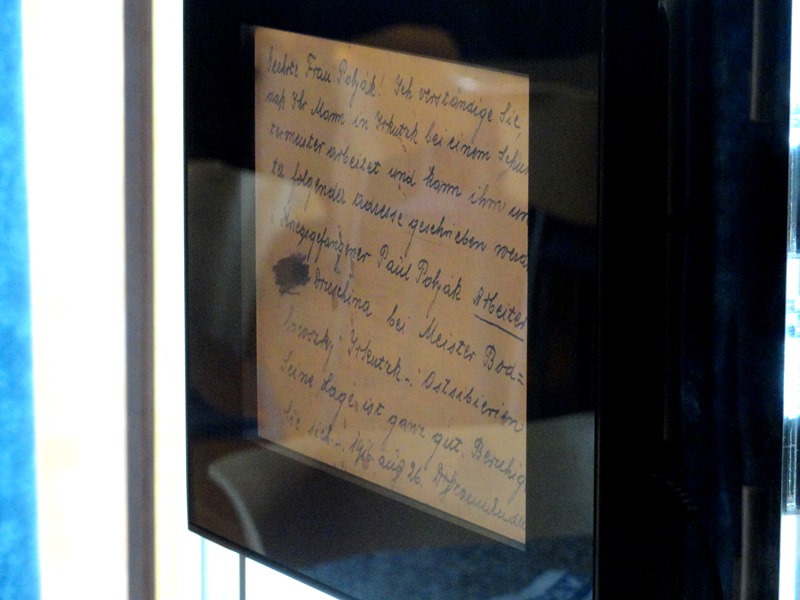 Geehrte Frau Polják! Ich verständige Sie,
daß Ihr Mann in Irkutzk bei einem Schus
termeister arbeitet und kann ihm un
ta folgender Adresse geschrieben werd
Kriegsgefangener Paul Polják Arbeiter
Druschina bei Meister Bod=
lowszky Irkutzk-. Ostsibirien
Seine Lage ist ganz gut. Beruhig
Sie sich-. 1916 aug 26.